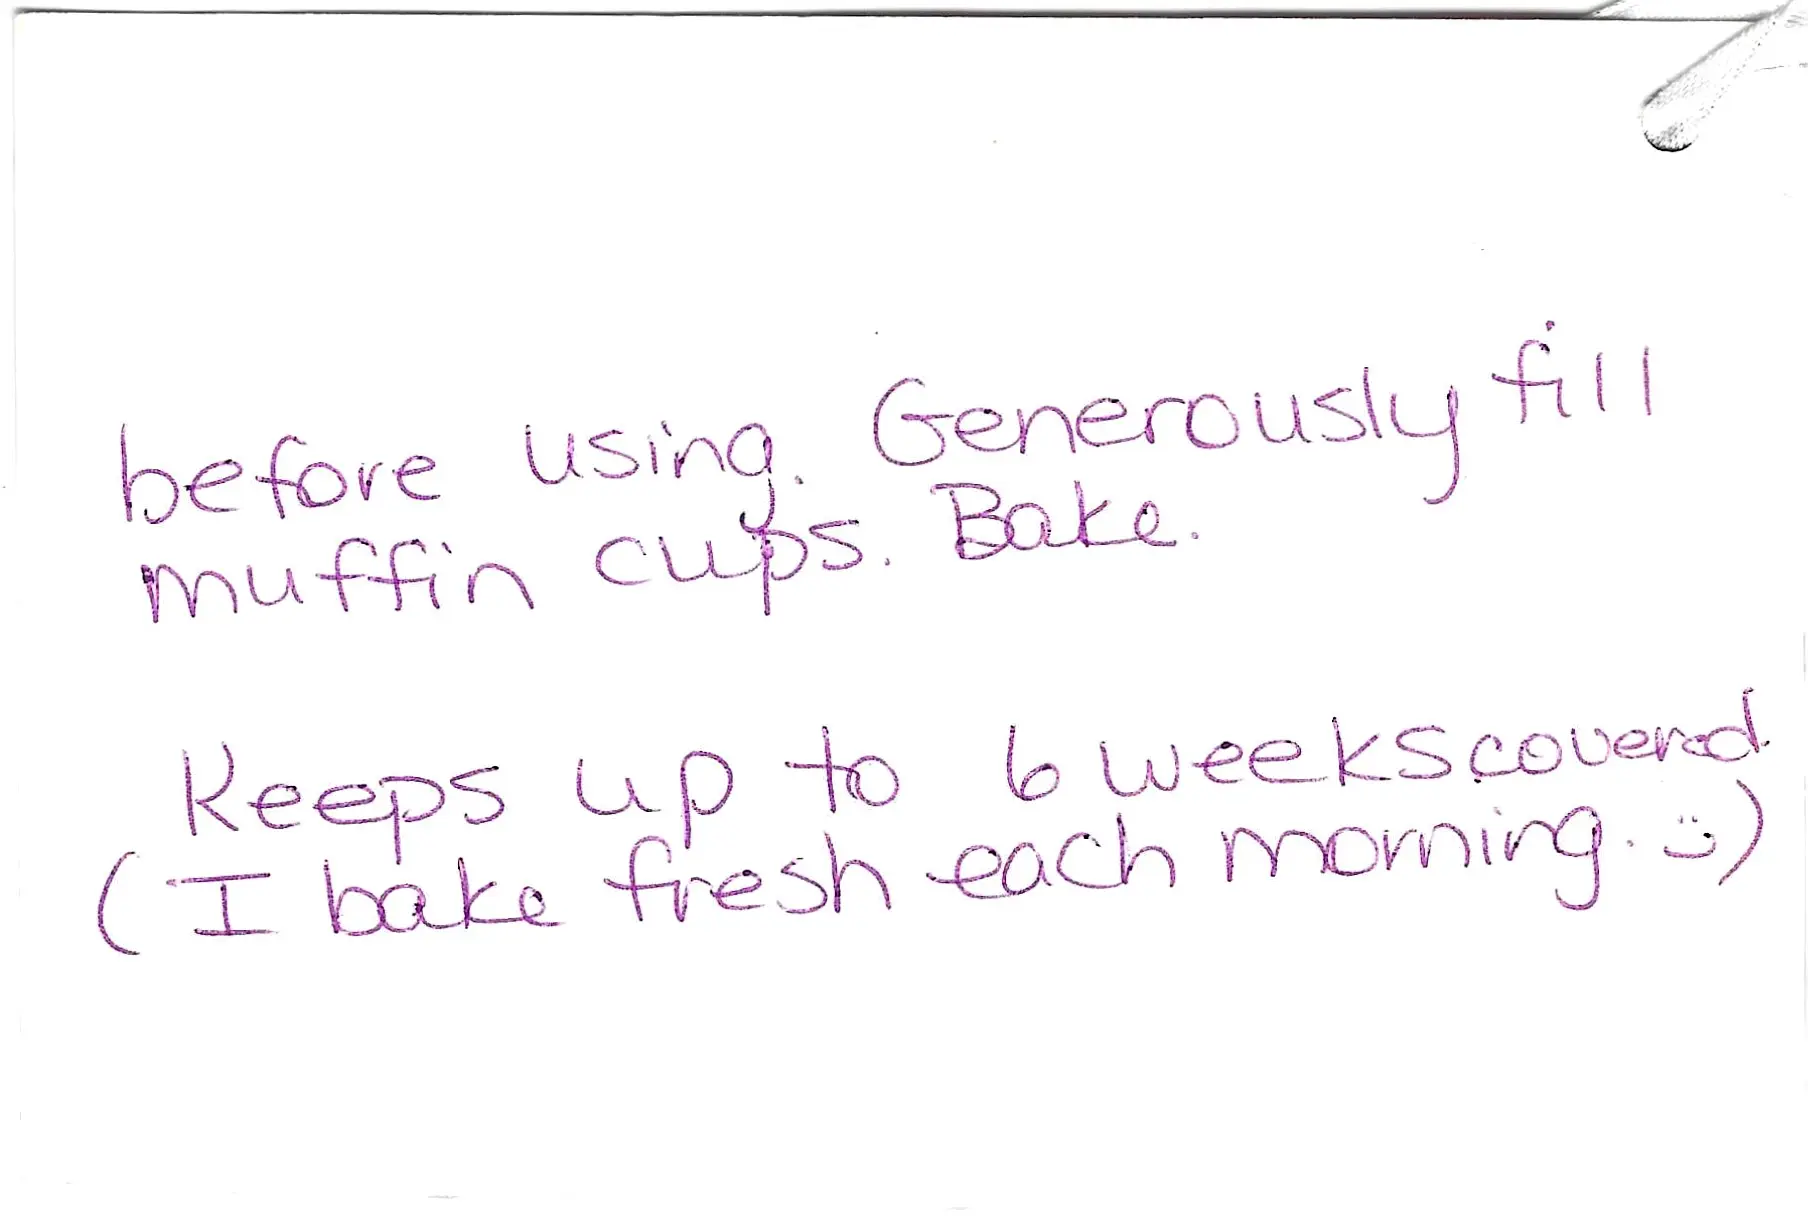 before using. Generously fill
muffin cups. Bake.
Keeps up to 6 weeks covered
(I bake fresh each morning. :))